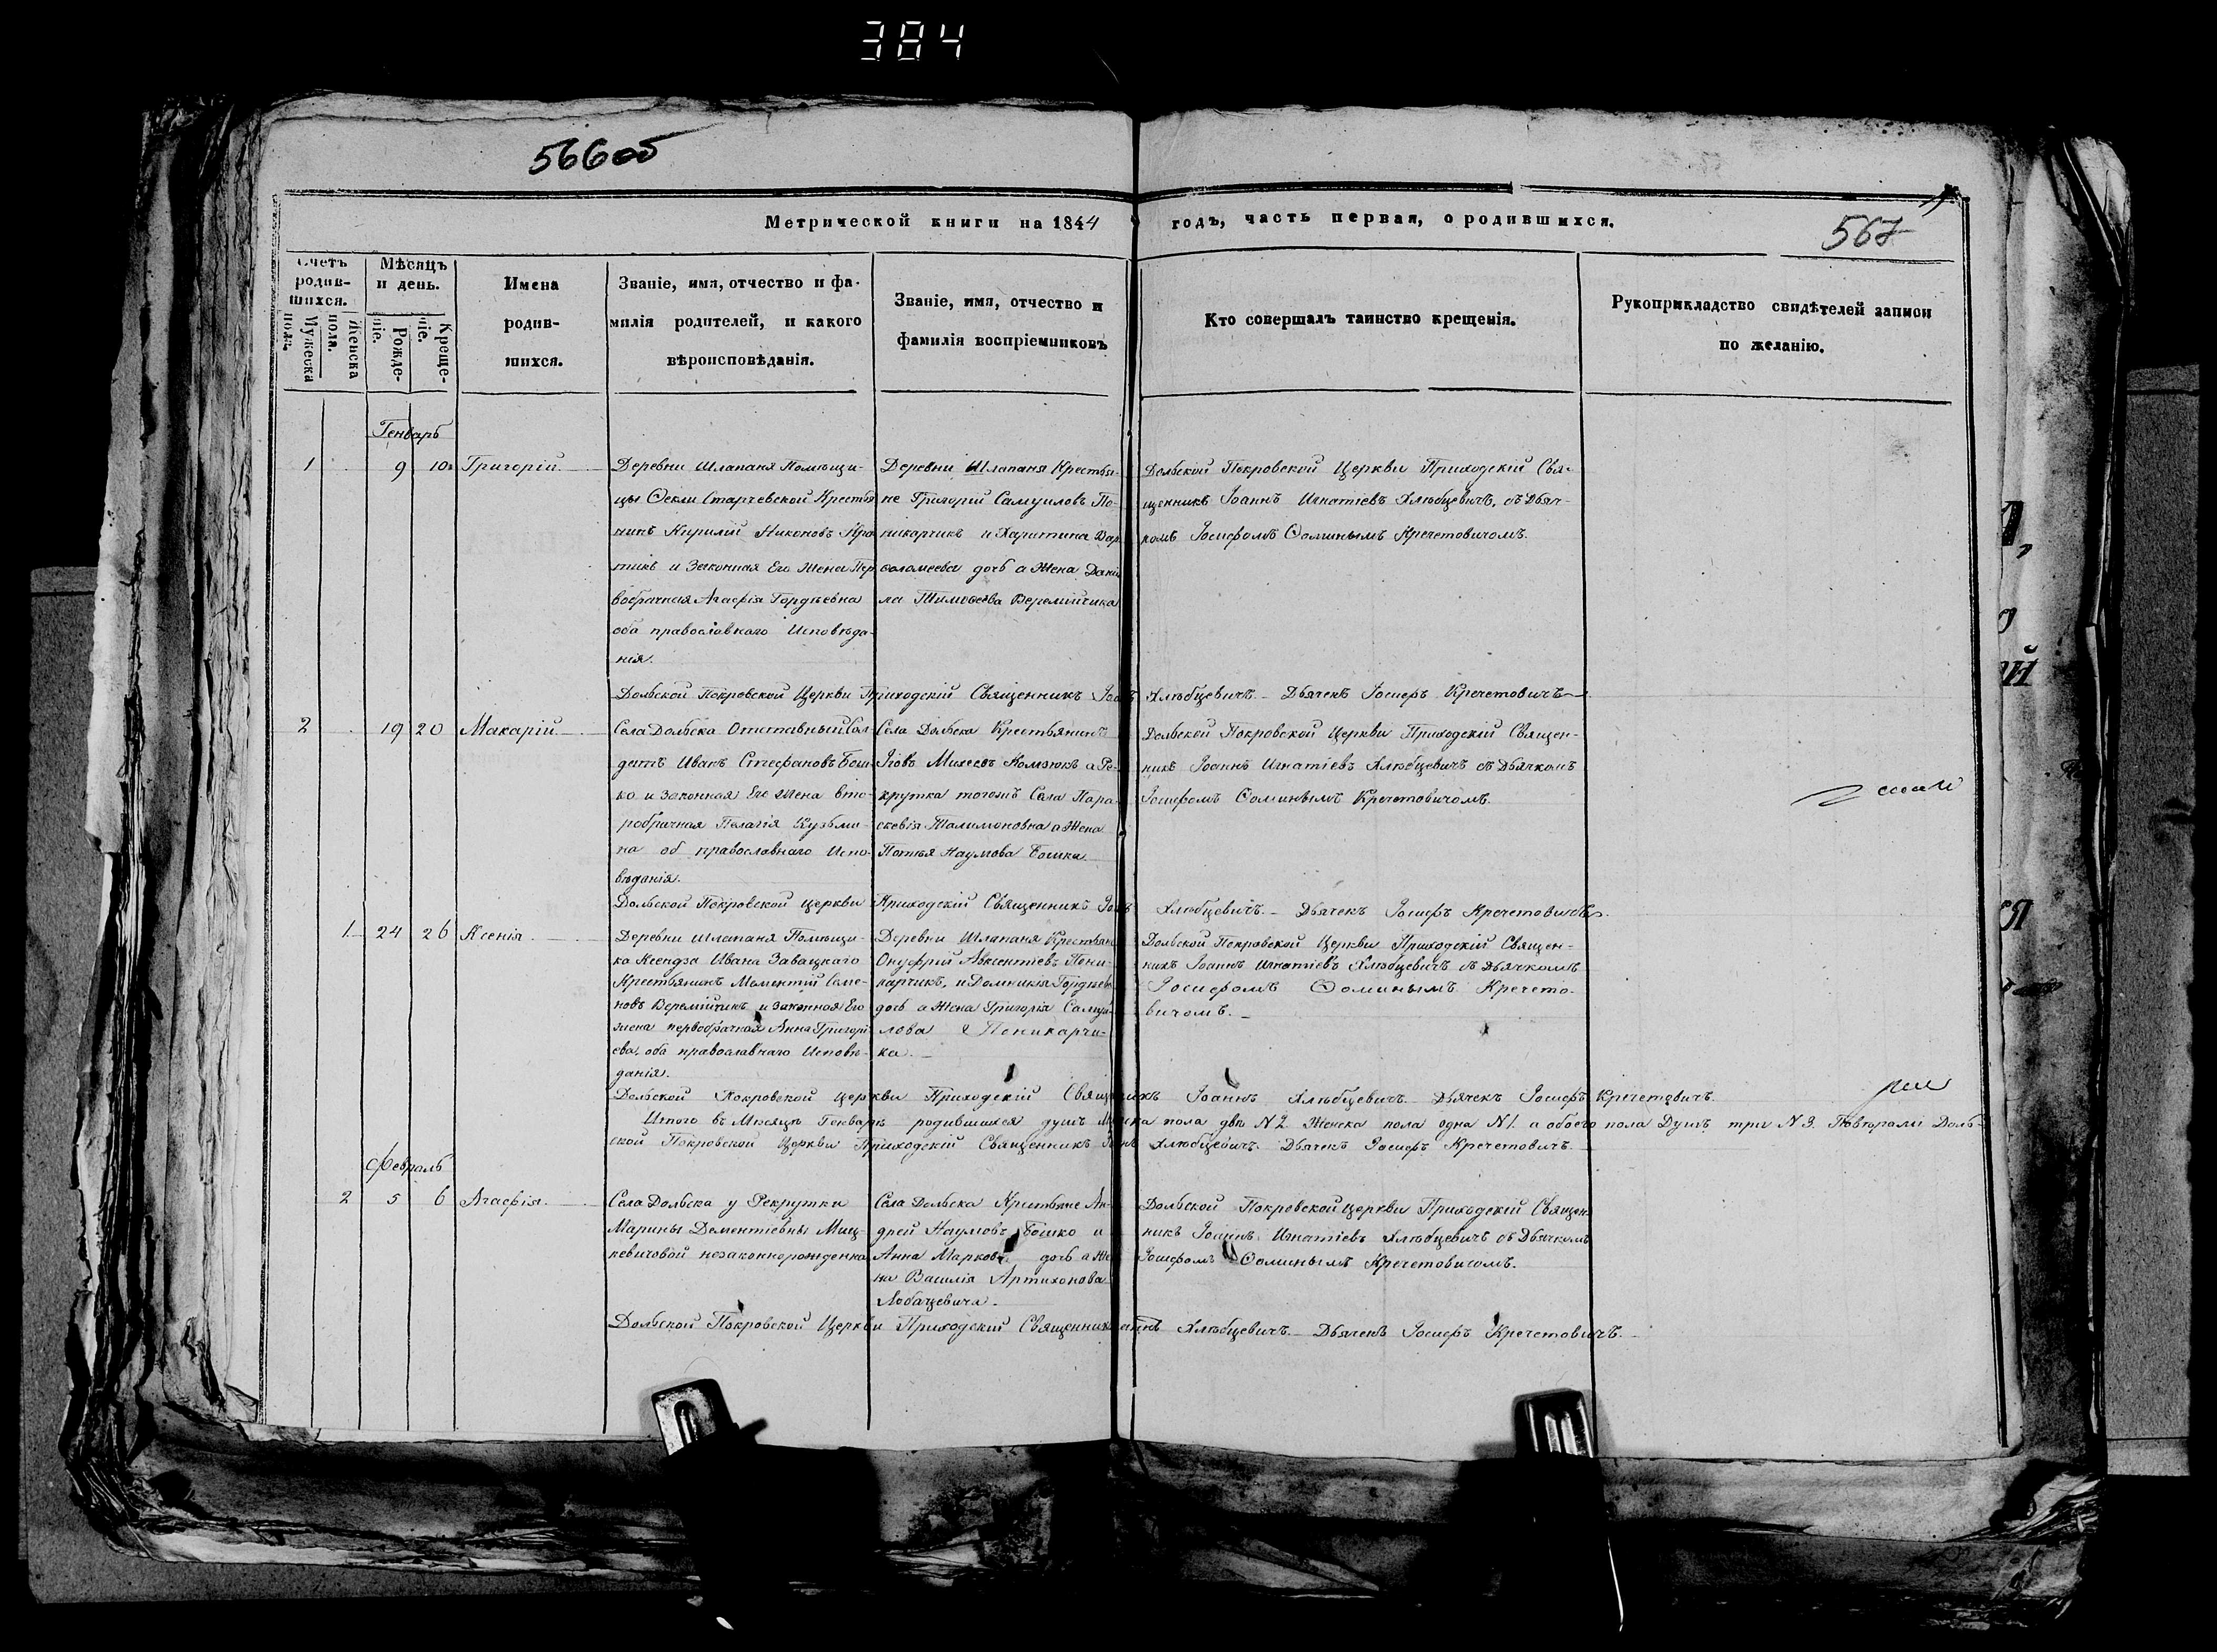 384
566 об
Метрической книги на 1844 годъ, часть первая, о родившихся.
567
Счетъ родив-шихся.
Мужеска пола.
Женска пола.
Мѣсяцъ и день.
Рожде-ніе.
Креще-ніе.
Имена
родив-
шихся.
Званіе, имя, отчество и фа-
милія родителей, и какого
вѣроисповѣданія.
Званіе, имя, отчество и
фамилія воспріемниковъ
Кто совершалъ таинство крещенія.
Рукоприкладство свидѣтелей записи
по желанію.
Генварь
1 9 10 Григорій
Деревни Шлапаня Помѣщи-
цы Феклы Старчевской Крестья
нинъ Кирилій Никоновъ
и Законная Его Жена Пер
вобрачная Агафія Гордѣевна
оба православнаго Исповѣда-
нія.
Деревни Шлапаня Крестья-
не Григорій Самуиловъ По-
никарчикъ и Харитина Вар
ѳоломеева дочь а Жена Дани
ла Тимоѳеева Веремійчика
Дольской Покровской Церкви Приходскій Свя-
щенникъ Іоаннъ Игнатіевъ Хлѣбцевичъ, съ Дьяч-
комъ Іосифомъ Ѳоминымъ Кречетовичомъ.
Дольской Покровской Церкви Приходскій Священникъ Іоанъ Хлѣбцевичъ. Дьячекъ Іосифъ Кречетовичъ
2 19 20 Макарій
Села Дольска Отставный Сол-
датъ Иванъ Стефановъ Бош-
ко и законная Его Жена вто-
робрачная Пелагія Кузьми-
на об православнаго Испо-
вѣданія.
Села Дольска Крестьянинъ
Іовъ Михеевъ Комзюкъ а Ре-
крутка тогожъ Села Пара-
скевія Жалимоновна а Жена
Потапа Наумова Бошка
Дольской Покровской Церкви Приходскій Священ-
никъ Іоаннъ Игнатіевъ Хлѣбцевичъ съ Дьячкомъ
Іосифомъ Ѳоминымъ Кречетовичомъ.
Дольской Покровской Церкви Приходскій Священникъ Іоанъ Хлѣбцевичъ. Дьячекъ Іосифъ Кречетовичъ.
1 24 26 Ксенія
Деревни Шлапаня Помѣщи-
ка Ксендза Ивана Завацкаго
Крестьянинъ Мелентій Семе-
новъ Веремійчикъ и Законная Его
жена первобрачная Анна Григорі
ева, оба православнаго Исповѣ-
данія.
Деревни Шлапаня Крестьян
Онуфрій Авксентіевъ Пони-
карчикъ, и Домникія Гордѣева
дочь а Жена Григорія Самуи-
лова Поникарчи-
ка.
Дольской Покровской Церкви Приходскій Священ-
никъ Іоаннъ Игнатіевъ Хлѣбцевичъ съ Дьячкомъ
Іосифомъ Ѳоминымъ Кречето-
вичомъ.
Дольской Покровской Церкви Приходскій Священникъ Іоаннъ Хлѣбцевичъ Дьячекъ Іосифъ Кречетовичъ.
Итого въ Мѣсяцѣ Генварѣ родившихся душъ Мужска пола двѣ N 2. Женска пола одна N 1. а обоего пола Душъ три N 3. Доль-
ской Покровской Церкви Приходскій Священникъ Іоанъ Хлѣбцевичъ. Дьячекъ Іосифъ Кречетовичъ.
Февраль
2 5 6 Агафія
Села Дольска у Рекрутки
Марины Дементіевны Миц-
кевичовой незаконнорожденна
Села Дольска Крестьяне Ан-
дрей Наумовъ Бошко и
Анна Маркова дочь а Же
на Василія Артихонова
Лобацевича.
Дольской Покровской Церкви Приходскій Священ
никъ Іоаннъ Игнатіевъ Хлѣбцевичъ съ Дьячкомъ
Іосифомъ Ѳоминымъ Кречетовичомъ.
Дольской Покровской Церкви Приходскій Священникъ Іоаннъ Хлѣбцевичъ. Дьячекъ Іосифъ Кречетовичъ.